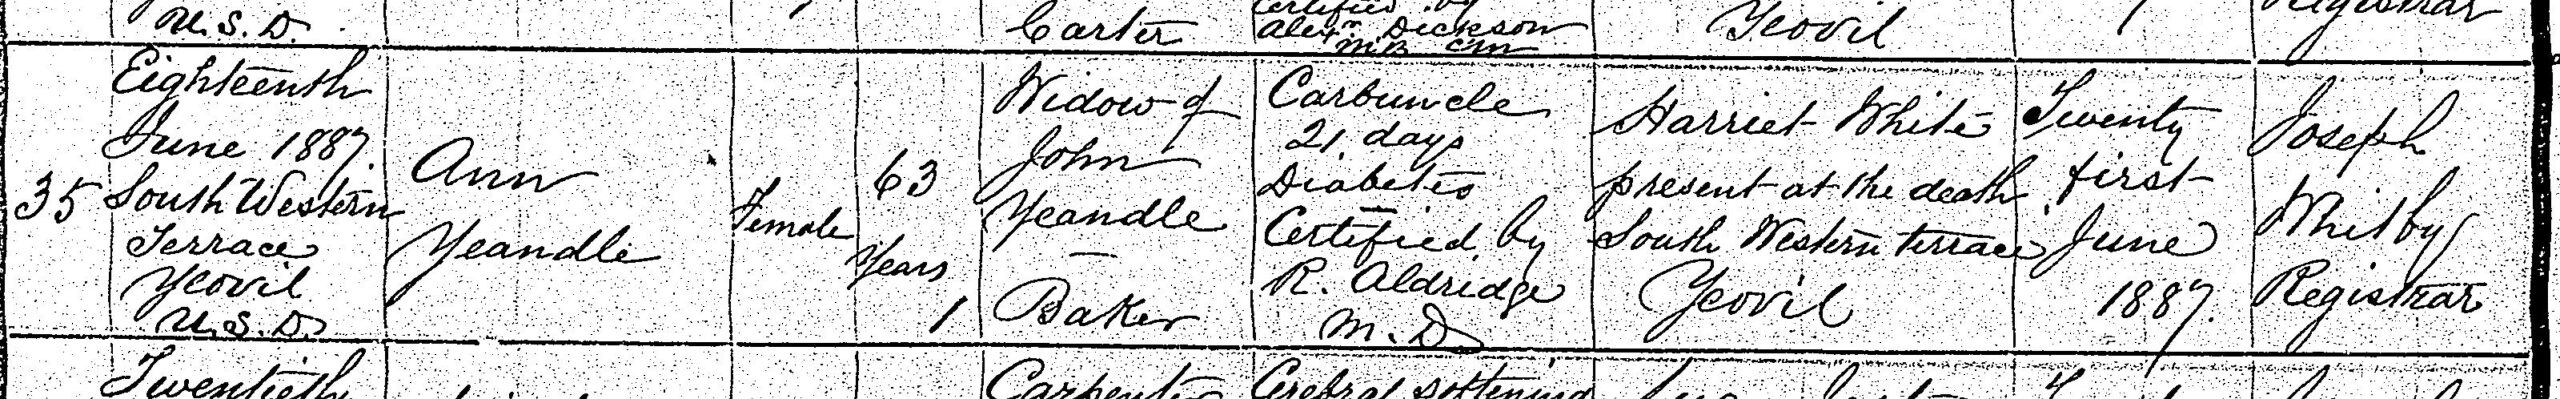 U.S.D.
Carter
Certified by
Alexr. Dickson
M.B. C.M
Yeovil
Registrar
35
Eighteenth
June 1887.
South Western
Terrace
Yeovil
U.S.D.
Ann
Yeandle
Female
63
Years
1
Widow of
John
Yeandle
—
Baker
Carbuncle
21 days
Diabetes
Certified by
R. Aldridge
M.D
Harriet White
present at the death
South Western terrace
Yeovil
Twenty
first
June
1887.
Joseph
Whitby
Registrar
Twentieth
Carpenter
Cerebral softening